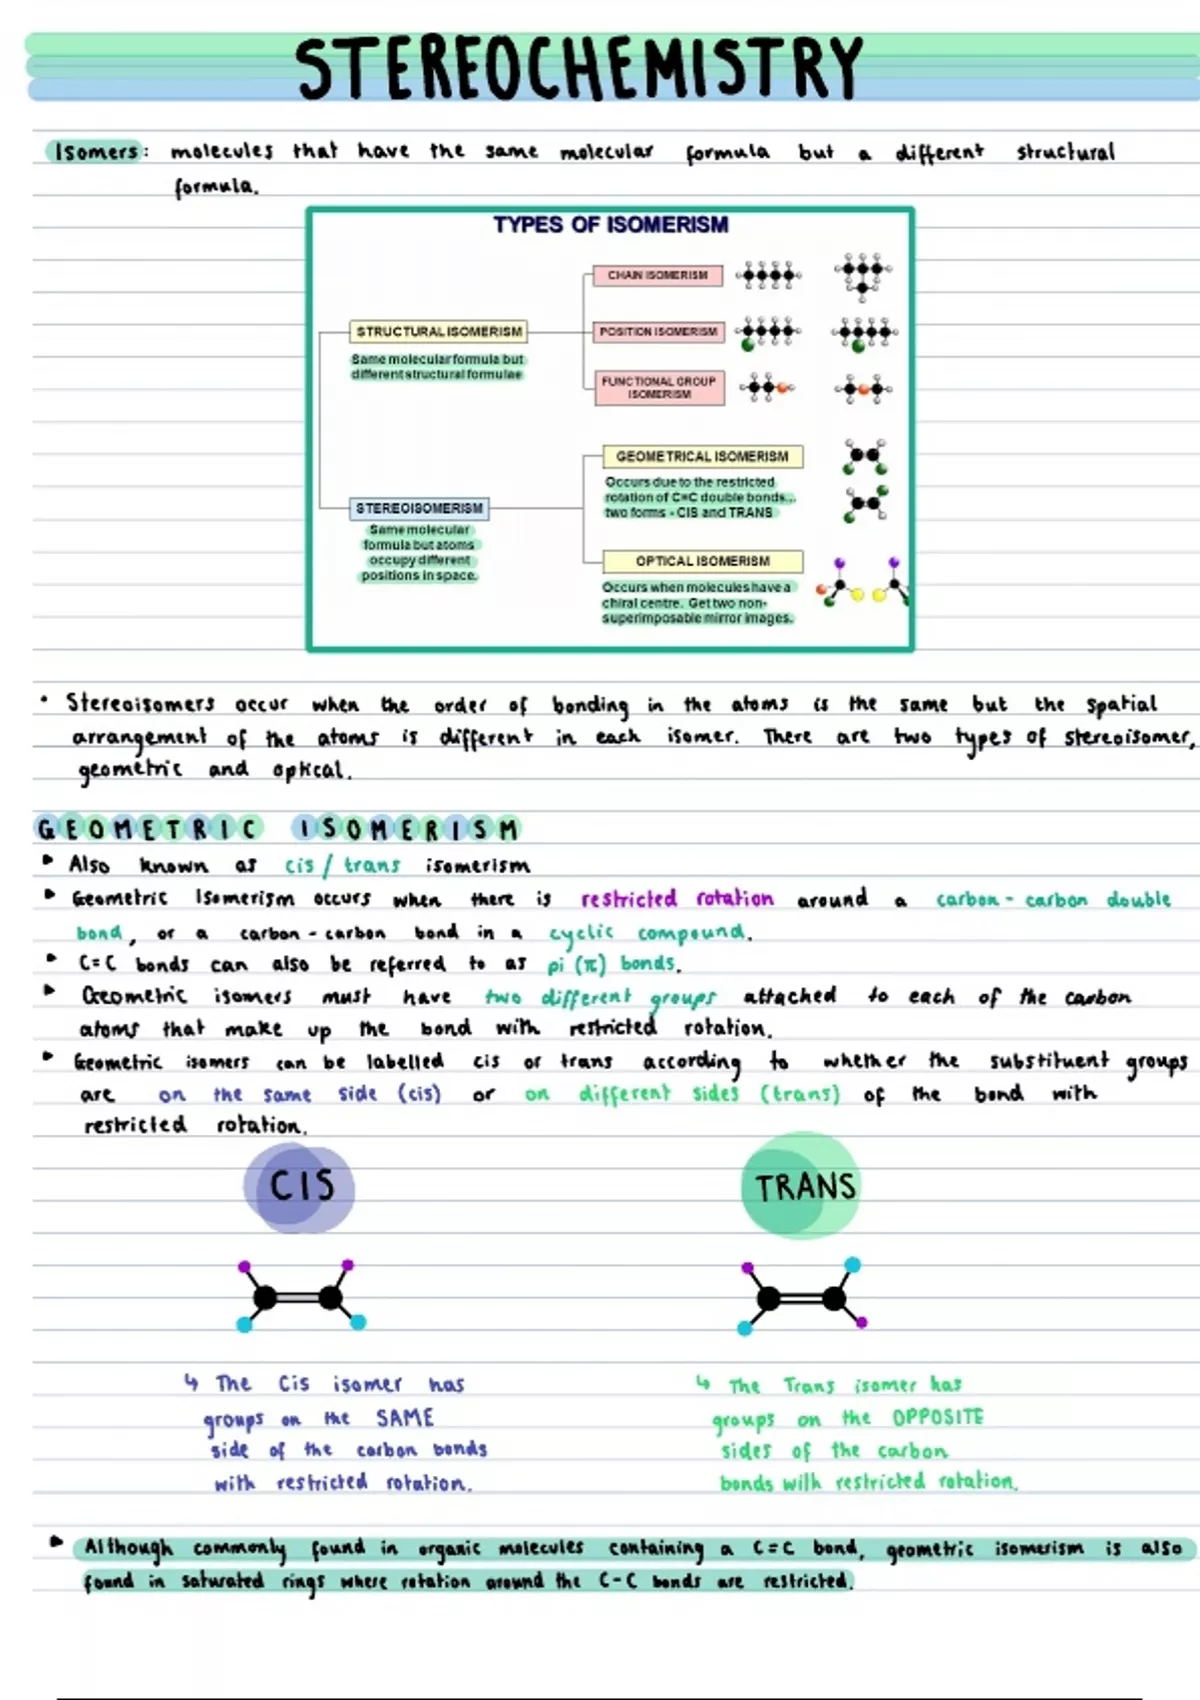 STEREOCHEMISTRY
Isomers: molecules that have the same molecular formula but a different structural
formula.
TYPES OF ISOMERISM
CHAIN ISOMERISM
STRUCTURAL ISOMERISM
POSITION ISOMERISM
Same molecular formula but
different structural formulae
FUNCTIONAL GROUP
ISOMERISM
GEOMETRICAL ISOMERISM
Occurs due to the restricted
rotation of C=C double bonds...
two forms - CIS and TRANS
STEREOISOMERISM
Same molecular
formula but atoms
occupy different
positions in space.
OPTICAL ISOMERISM
Occurs when molecules have a
chiral centre. Get two non-
superimposable mirror images.
• Stereoisomers occur when the order of bonding in the atoms is the same but the spatial
arrangement of the atoms is different in each isomer. There are two types of stereoisomer,
geometric and optical.
GEOMETRIC ISOMERISM
Also known as cis / trans isomerism
Geometric Isomerism occurs when there is restricted rotation around a carbon - carbon double
bond, or a carbon - carbon bond in a cyclic compound.
C=C bonds can also be referred to as pi (π) bonds.
Geometric isomers must have two different groups attached to each of the carbon
atoms that make up the bond with restricted rotation.
Geometric isomers can be labelled cis or trans according to whether the substituent groups
are on the same side (cis) or on different sides (trans) of the bond with
restricted rotation.
CIS
TRANS
↳ The Cis isomer has
groups on the SAME
side of the carbon bonds
with restricted rotation.
↳ The Trans isomer has
groups on the OPPOSITE
sides of the carbon
bonds with restricted rotation.
Although commonly found in organic molecules containing a C=C bond, geometric isomerism is also
found in saturated rings where rotation around the C-C bonds are restricted.